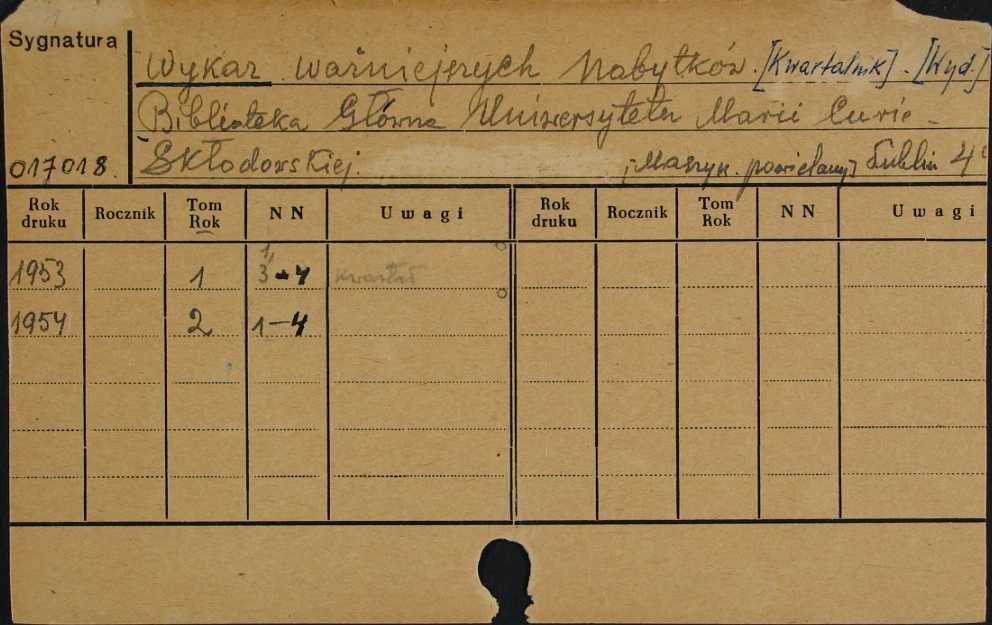 Sygnatura
Wykaz ważniejszych Nabytków. [Kwartalnik]. [Wyd.]
Biblioteka Główna Uniwersytetu Marii Curie-
017018. Skłodowskiej. [Maszyn. powielany] Lublin 4°
Rok druku Rocznik Tom Rok NN Uwagi Rok druku Rocznik Tom Rok NN Uwagi
1953 1 1, 3-4
1954 2 1-4